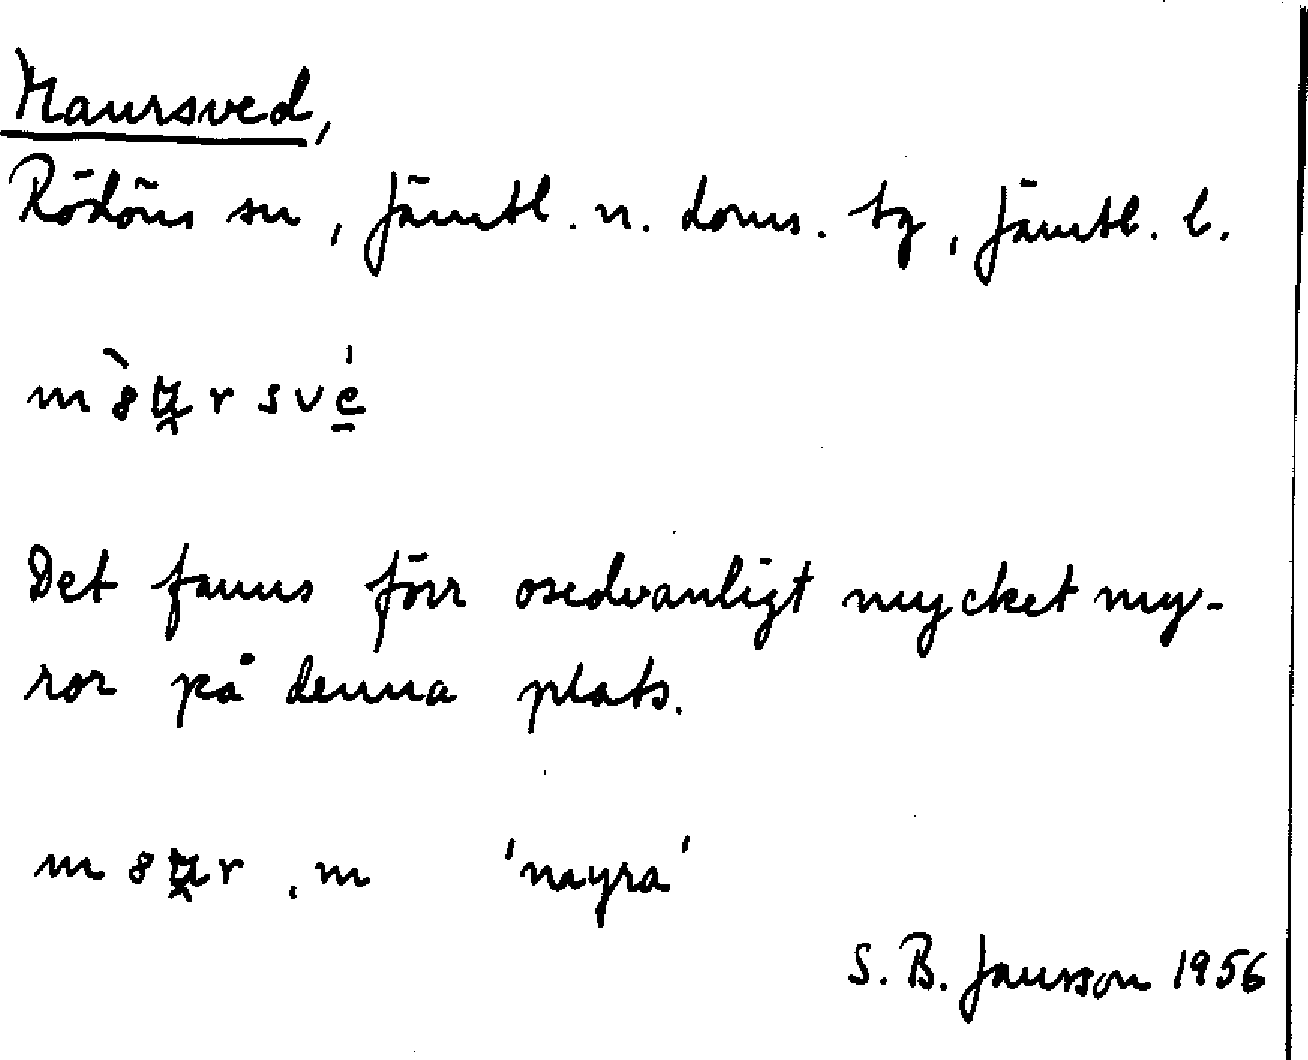 Maursved,
Rödöns sn, Jämtl. n. doms. tg, Jämtl. l.
Det fanns förr osedvanligt mycket my-
ror på denna plats.
, m 'myra'
S. B. Jansson 1956